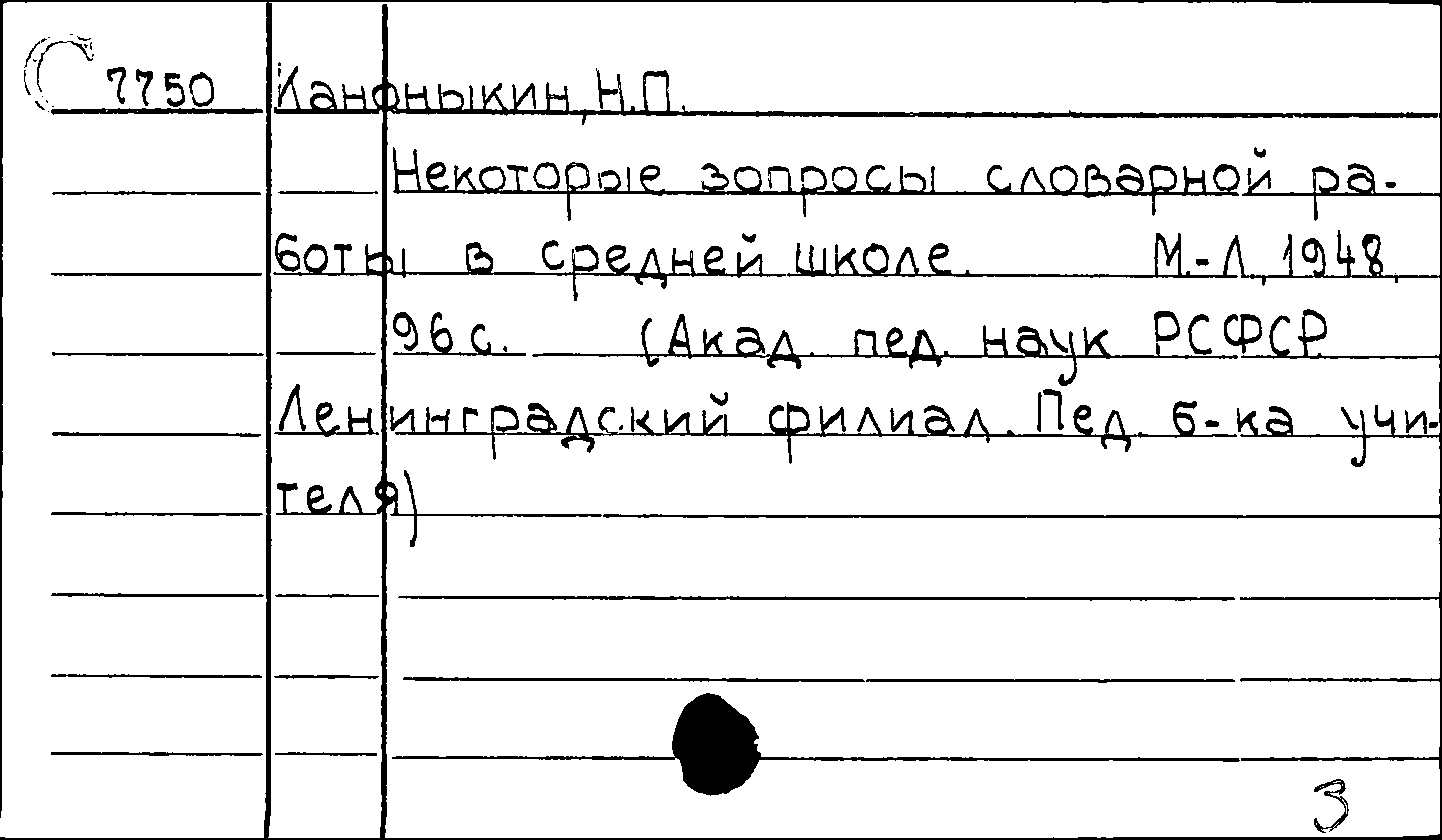 С 7750 Каноныкин, Н.П.
Некоторые вопросы словарной ра-
боты в средней школе. М.-Л., 1948.
96 с. (Акад. пед. наук РСФСР.
Ленинградский филиал. Пед. б-ка учи-
теля)
3